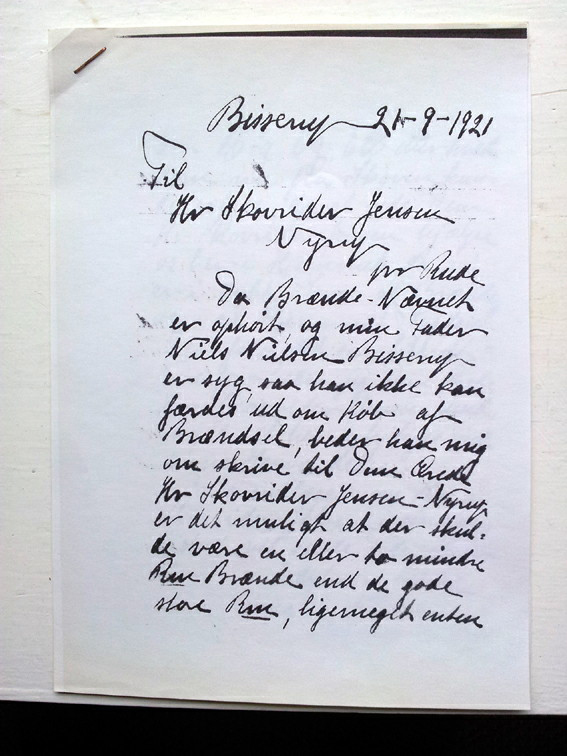 Bisserup 21-9-1921
Til
Hr Skovrider Jensen
Nyrup
pr Rude
Da Brænde-Nævnet
er ophört, og min Fader
Niels Nielsen Bisserup
er syg, saa han ikke kan
færdes ud om Köb af
Brændsel, beder han mig
om skrive til Dem Ærede
Hr Skovrider Jensen-Nyrup
er det muligt at der skul-
de være en eller to mindre
Rm Brænde end de gode
store Rm, ligemeget enten